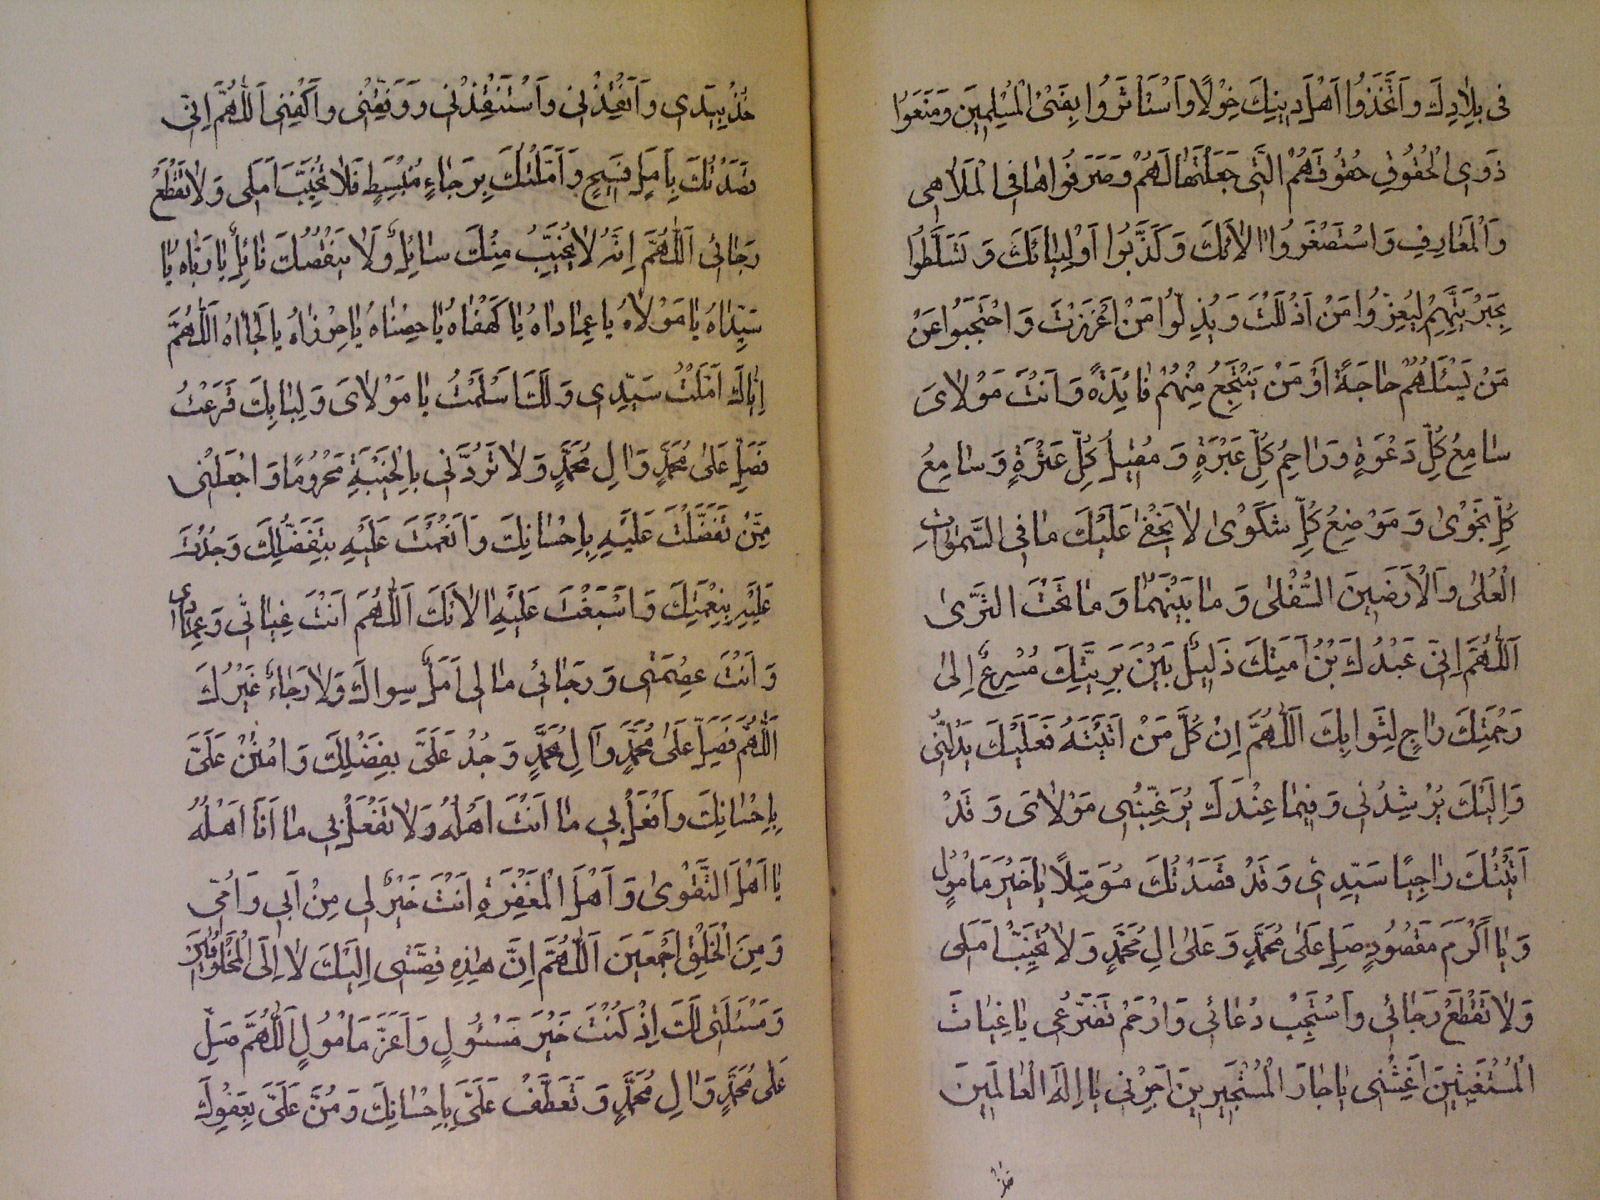 فى بِلادِكَ وَاتَّخَذُوا اَهْلَ دينِكَ خِوَلًا وَاسْتَاْثَرُوا بِفَىْءِ الْمُسْلِمينَ وَمَنَعُوا
ذَوِى الْحُقُوقِ حُقُوقَهُمُ الَّتى جَعَلْتَهَا لَهُمْ وَصَرَفُوهَا فِى الْمَلاهى
وَالْمَعَازِفِ وَاسْتَصْغَرُوا الاٰئَكَ وَكَذَّبُوا اَوْلِيٰائَكَ وَتَسَلَّطُوا
بِجَبْرِيَّتِهِمْ لِيُعِزُّوا مَنْ اَذْلَلْتَ وَيُذِلُّوا مَنْ اَعْزَزْتَ وَاحْتَجَبُوا عَنْ
مَنْ يَسْئَلُهُمْ حٰاجَةً اَوْ مَنْ يَنْتَجِعُ مِنْهُمْ فٰائِدَةً وَاَنْتَ مَوْلاىَ
سٰامِعُ كُلِّ دَعْوَةٍ وَرٰاحِمُ كُلِّ عَبْرَةٍ وَمُقيلُ كُلِّ عَثْرَةٍ وَسٰامِعُ
كُلِّ نَجْوىٰ وَمَوْضِعُ كُلِّ شَكْوىٰ لا يَخْفىٰ عَلَيْكَ مٰا فِى السَّمٰوٰاتِ
الْعُلىٰ وَالْاَرَضينَ السُّفْلىٰ وَمٰا بَيْنَهُمٰا وَمٰا تَحْتَ الثَّرىٰ
اَللّٰهُمَّ اِنّى عَبْدُكَ بْنُ اَمَتِكَ ذَليلٌ بَيْنَ بَرِيَّتِكَ مُسْرِعٌ اِلىٰ
رَحْمَتِكَ رٰاجٍ لِثَوٰابِكَ اَللّٰهُمَّ اِنَّ كُلَّ مَنْ اَتَيْتُهُ فَعَلَيْكَ يَدُلُّنى
وَاِلَيْكَ يُرْشِدُنى وَفيمٰا عِنْدَكَ يُرَغِّبُنى مَوْلاىَ وَقَدْ
اَتَيْتُكَ رٰاجِيًا سَيِّدى وَقَدْ قَصَدْتُكَ مُؤَمِّلًا يٰا خَيْرَ مَاْمُولٍ
وَيٰا اَكْرَمَ مَقْصُودٍ صَلِّ عَلىٰ مُحَمَّدٍ وَعَلىٰ الِ مُحَمَّدٍ وَلا تُخَيِّبْ اَمَلى
وَلا تَقْطَعْ رَجٰائى وَاسْتَجِبْ دُعٰائى وَارْحَمْ تَضَرُّعى يٰا غِيٰاثَ
الْمُسْتَغيثينَ اَغِثْنى يٰا جٰارَ الْمُسْتَجيرينَ اَجِرْنى يٰا اِلٰهَ الْعٰالَمينَ
خُذْ بِيَدى وَاَنْقِذْنى وَاسْتَنْقِذْنى وَوَفِّقْنى وَاكْفِنى اَللّٰهُمَّ اِنّى
قَصَدْتُكَ بِاَمَلٍ فَسيحٍ وَاَمَّلْتُكَ بِرَجٰاءٍ مُنْبَسِطٍ فَلا تُخَيِّبْ اَمَلى وَلا تَقْطَعْ
رَجٰائى اَللّٰهُمَّ اِنَّهُ لا يُخَيَّبُ مِنْكَ سٰائِلٌ وَلا يَنْقُصُكَ نٰائِلٌ يٰا رَبّٰاهُ يٰا
سَيِّدٰاهُ يٰا مَوْلاهُ يٰا عِمٰادٰاهُ يٰا كَهْفٰاهُ يٰا حِصْنٰاهُ يٰا حِرْزٰاهُ يٰا لَجَاٰاهُ اَللّٰهُمَّ
اِيّٰاكَ اَمَّلْتُ سَيِّدى وَلَكَ اَسْلَمْتُ يٰا مَوْلاىَ وَلِبٰابِكَ قَرَعْتُ
فَصَلِّ عَلىٰ مُحَمَّدٍ وَالِ مُحَمَّدٍ وَلا تَرُدَّنى بِالْخَيْبَةِ مَحْرُومًا وَاجْعَلْنى
مِمَّنْ تَفَضَّلْتَ عَلَيْهِ بِاِحْسٰانِكَ وَاَنْعَمْتَ عَلَيْهِ بِتَفَضُّلِكَ وَجُدْتَ
عَلَيْهِ بِنِعْمَتِكَ وَاَسْبَغْتَ عَلَيْهِ الاٰئَكَ اَللّٰهُمَّ اَنْتَ غِيٰاثى وَعِمٰادى
وَاَنْتَ عِصْمَتى وَرَجٰائى مٰا لى اَمَلٌ سِوٰاكَ وَلا رَجٰاءٌ غَيْرُكَ
اَللّٰهُمَّ فَصَلِّ عَلىٰ مُحَمَّدٍ وَالِ مُحَمَّدٍ وَجُدْ عَلَىَّ بِفَضْلِكَ وَامْنُنْ عَلَىَّ
بِاِحْسٰانِكَ وَافْعَلْ بى مٰا اَنْتَ اَهْلُهُ وَلا تَفْعَلْ بى مٰا اَنَا اَهْلُهُ
يٰا اَهْلَ التَّقْوىٰ وَاَهْلَ الْمَغْفِرَةِ اَنْتَ خَيْرٌ لى مِنْ اَبى وَاُمّى
وَمِنَ الْخَلْقِ اَجْمَعينَ اَللّٰهُمَّ اِنَّ هٰذِهِ قِصَّتى اِلَيْكَ لا اِلَى الْمَخْلُوقينَ
وَمَسْئَلَتى لَكَ اِذْ كُنْتَ خَيْرَ مَسْئُولٍ وَاَعَزَّ مَاْمُولٍ اَللّٰهُمَّ صَلِّ
عَلىٰ مُحَمَّدٍ وَالِ مُحَمَّدٍ وَتَعَطَّفْ عَلَىَّ بِاِحْسٰانِكَ وَمُنَّ عَلَىَّ بِعَفْوِكَ